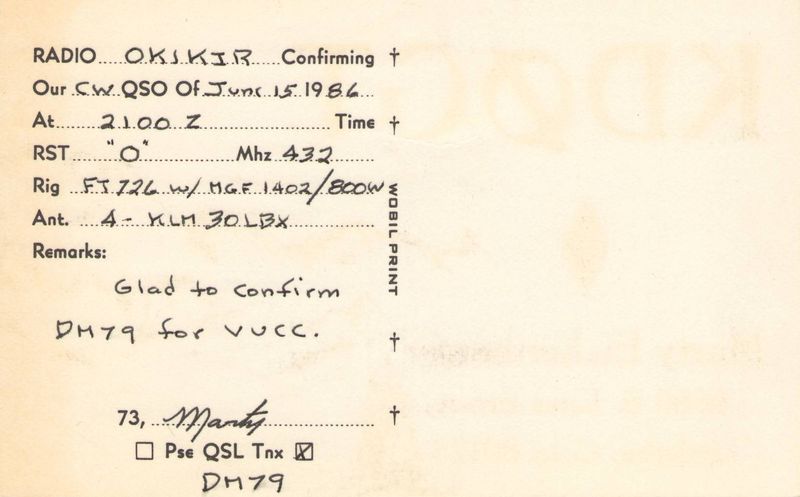 RADIO OK1KIR Confirming
Our CW QSO Of June 15 1986
At 2100 Z Time
RST "O" Mhz 432
Rig FT726 w/ MGF 1402/800W
Ant. 4 - KLM 30LBX
Remarks:
Glad to confirm
DM79 for VUCC.
73, Marty
Pse QSL Tnx
DM79
WOBIL PRINT